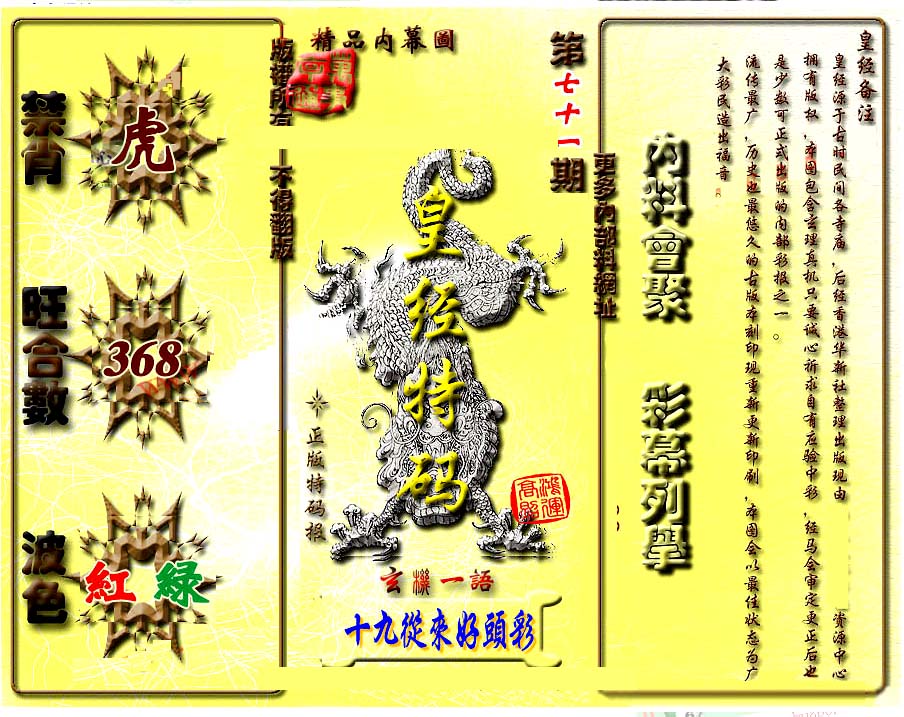 精品内幕圖
第七十一期
版權所有
不得翻版
禁肖
虎
旺合數
368
波色
紅 綠
皇经特码
正版特码报
鴻運高照
玄機一語
十九從來好頭彩
更多內部料網址
内料會聚
彩幕列舉
皇经备注
皇经源于古时民间各寺庙，后经香港华新社整理出版现由
资源中心
拥有版权，本图包含玄理真机只要诚心祈求自有应验中彩，经马会审定更正后也
是少数可正式出版的内部彩报之一。
流传最广，历史也最悠久的古版本刻印现重新更新印刷，本图会以最佳状态为广
大彩民造出福音